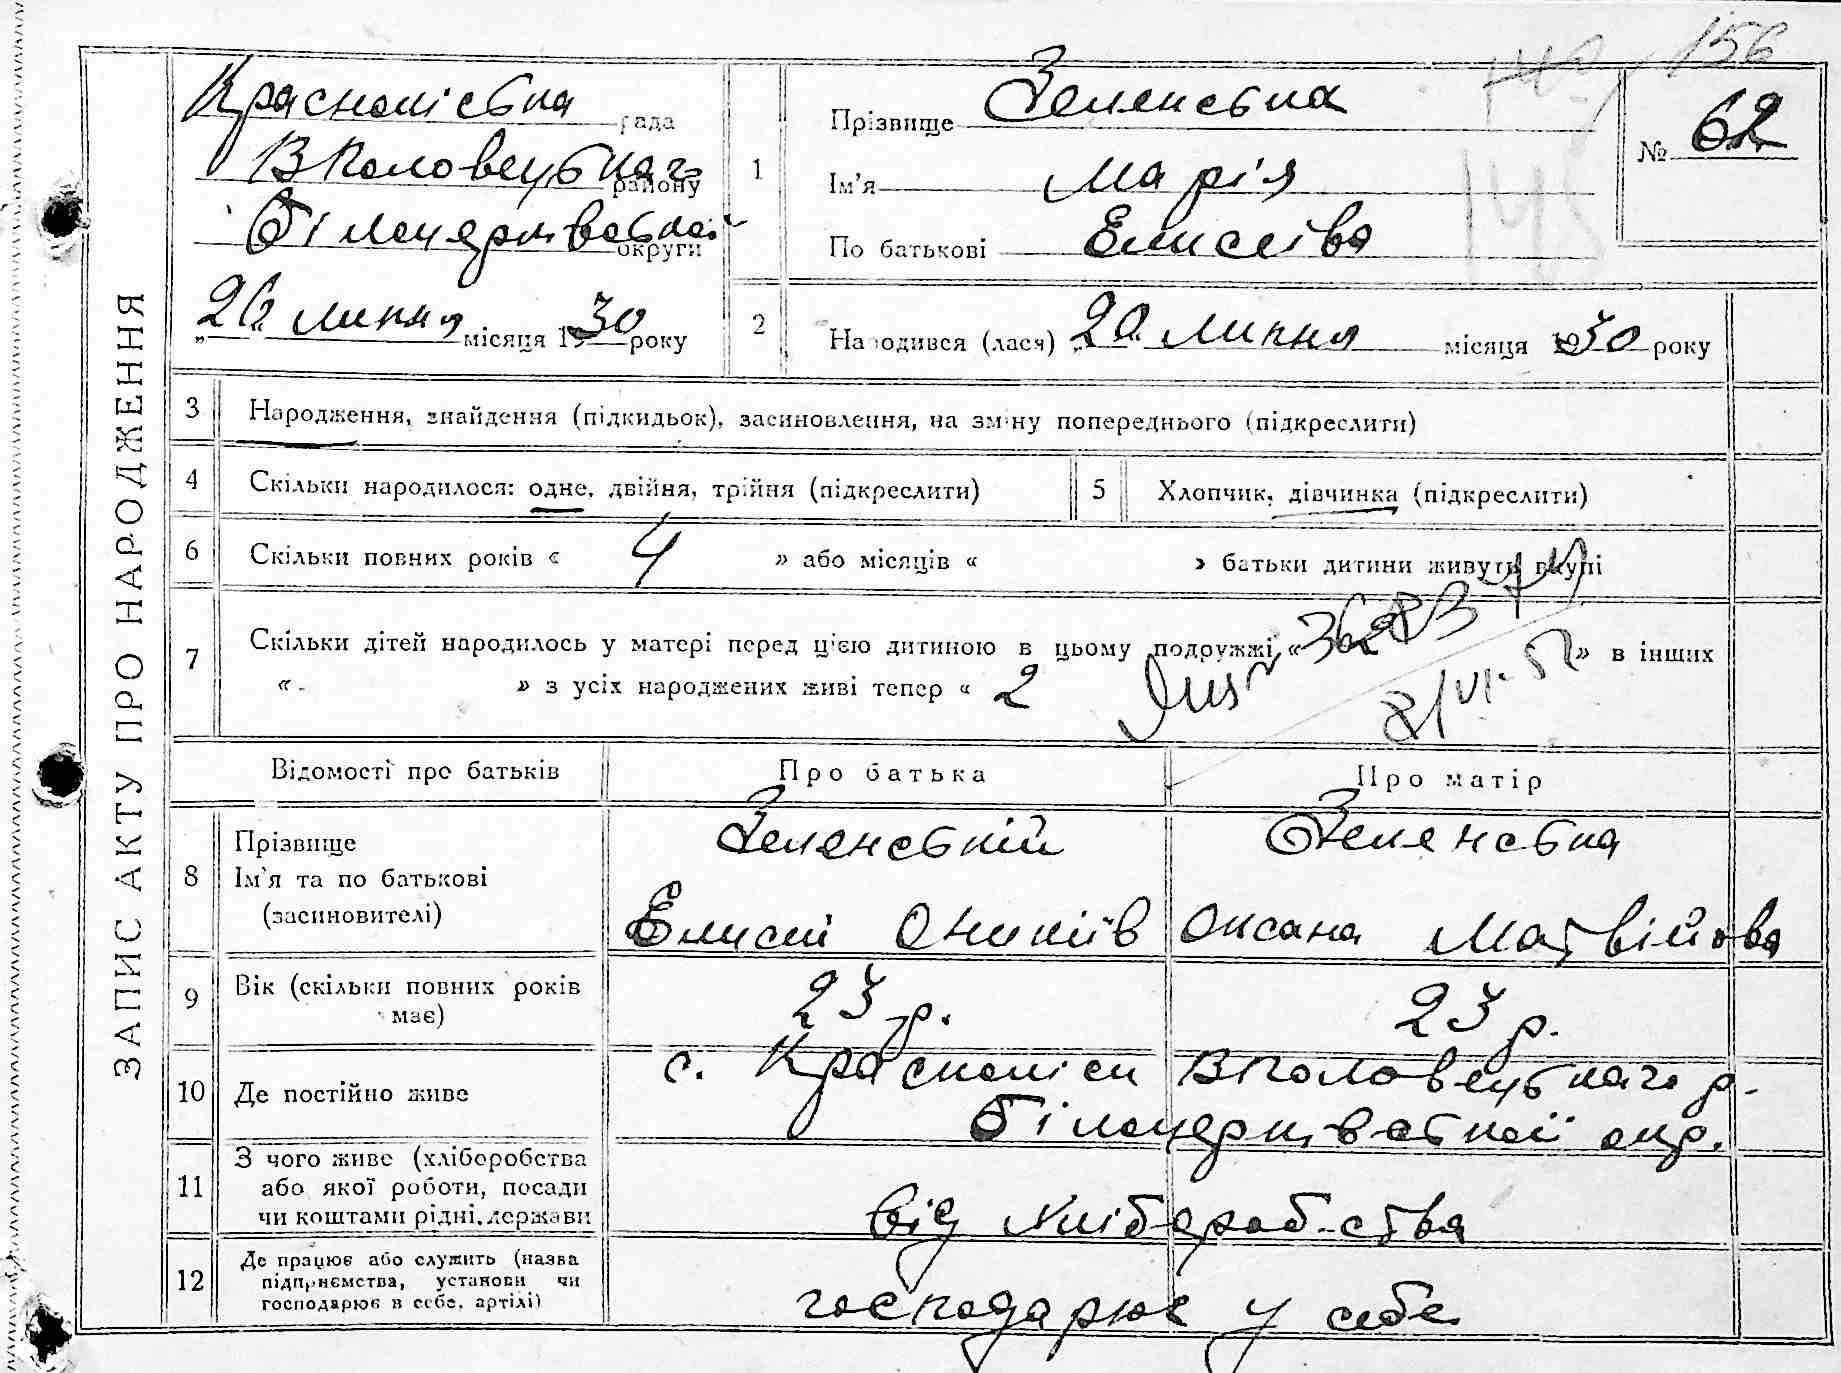 156
ЗАПИС АКТУ ПРО НАРОДЖЕННЯ
Краснолісьна рада
ВПоловецьного району
Білоцерківської округи
„26" липня місяця 1930 року
1 Прізвище Зеленська
Ім'я Марія
По батькові Елисеїва
№ 62
145
2 Народився (лася) „20" липня місяця 1930 року
3 Народження, знайдення (підкидьок), засиновлення, на зміну попереднього (підкреслити)
4 Скільки народилося: одне, двійня, трійня (підкреслити)
5 Хлопчик, дівчинка (підкреслити)
6 Скільки повних років « 4 » або місяців « » батьки дитини живуть вкупі
7 Скільки дітей народилось у матері перед цією дитиною в цьому подружжі « » в інших
« - » з усіх народжених живі тепер « 2
Відомості про батьків Про батька Про матір
8 Прізвище
Ім'я та по батькові
(засиновителі)
Зеленський Зеленська
Елисей Оникіїв Оксана Матвійова
9 Вік (скільки повних років має) 23 р. 23 р.
10 Де постійно живе с. Краснолісы ВПоловецького р.
Білоцерківської окр.
11 З чого живе (хліборобства
або якої роботи, посади
чи коштами рідні, держави
від хліборобства
12 Де працює або служить (назва
підприємства, установи чи
господарює в себе, артілі)
господарює у себе